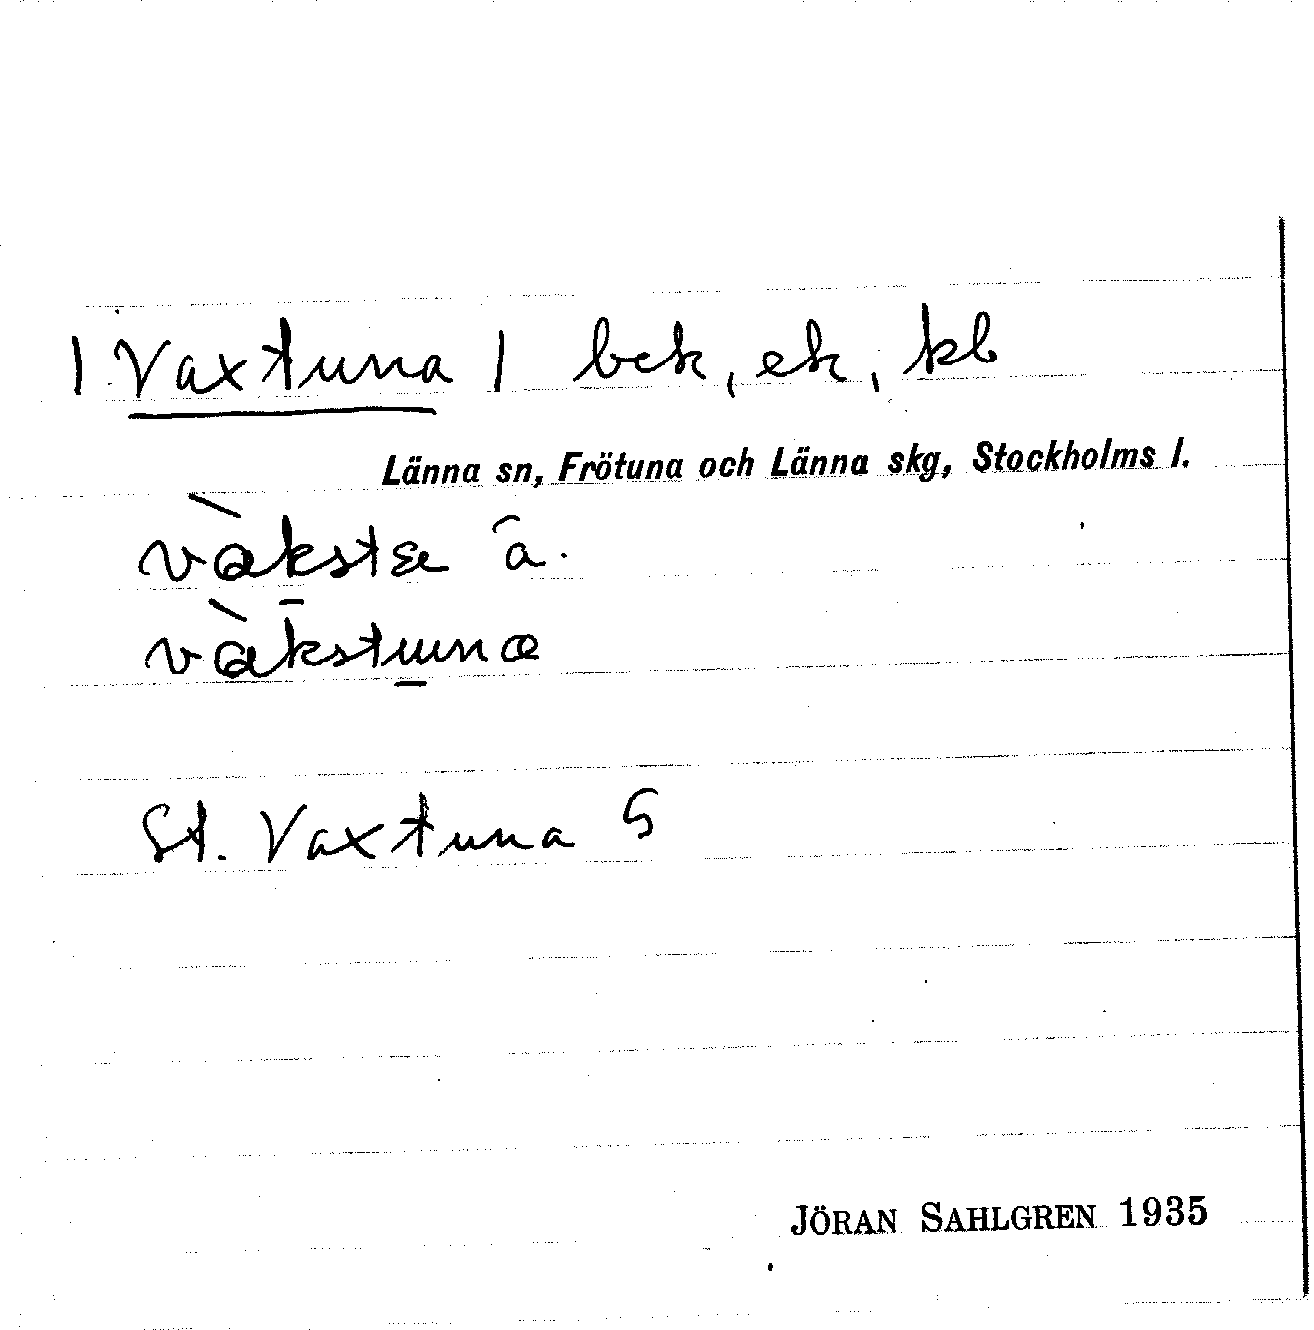 | Vaxtuna | bek, ek, kb
Länna sn, Frötuna och Länna skg, Stockholms l.
St. Vaxtuna G
JÖRAN SAHLGREN 1935